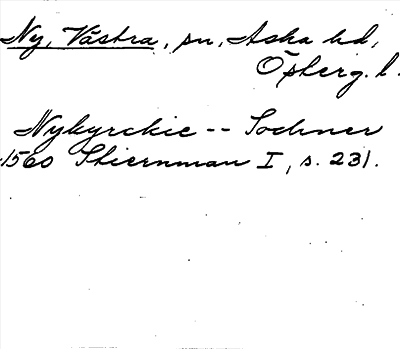 Ny, Västra, sn, Aska hd,
Österg. l.
Nykyrckie -- Sochner
1560 Stiernman I, s. 231.